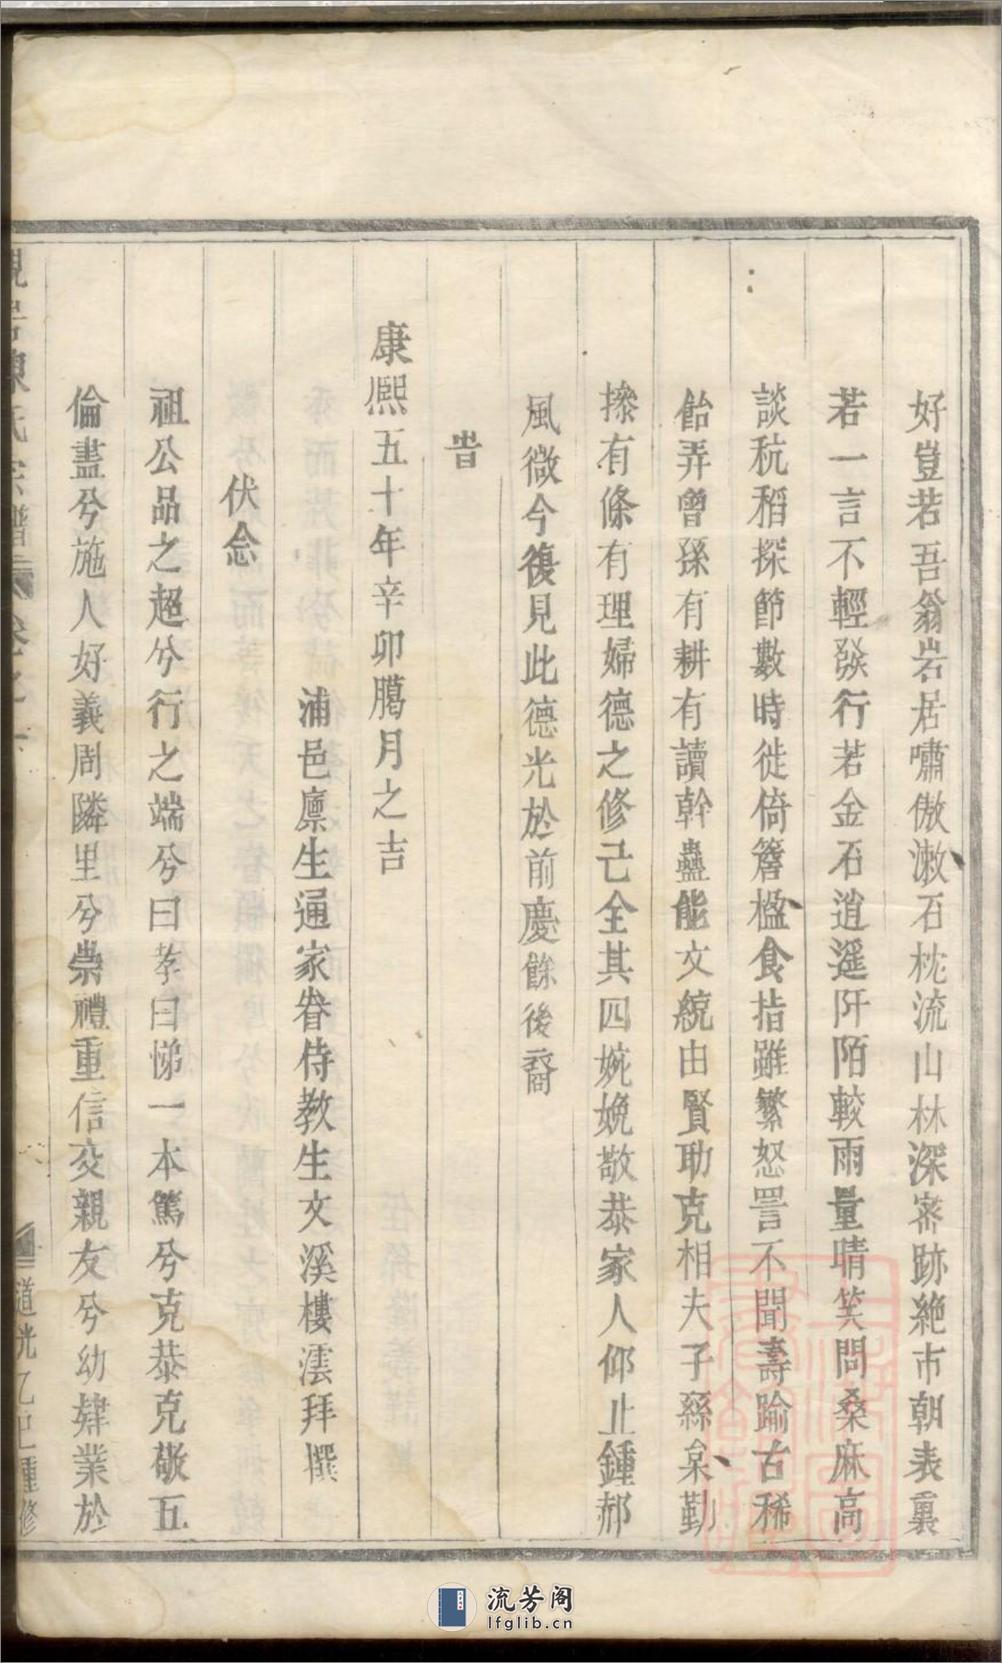 好豈若吾翁岩居嘯傲漱石枕流山林深密跡絕市朝表裏
若一言不輕發行若金石逍遥阡陌較雨量晴笑問桑麻高
談秔稻探節數時徙倚簷楹食指雖繁怒詈不聞壽踰古稀
飴弄曾孫有耕有讀幹蠱能文統由賢助克相夫子絲枲勤
摻有條有理婦德之修已全其四婉娩敬恭家人仰止鍾郝
風微今復見此德光於前慶餘後裔
旹
康熙五十年辛卯臈月之吉
浦邑廪生通家眷侍教生文溪樓澐拜撰
伏念
祖公品之超兮行之端兮曰孝曰悌一本篤兮克恭克敬五
倫盡兮施人好義周隣里兮崇禮重信交親友兮幼肄業於
陳氏宗譜 卷之 道光乙巳重修
流芳阁
lfglib.cn